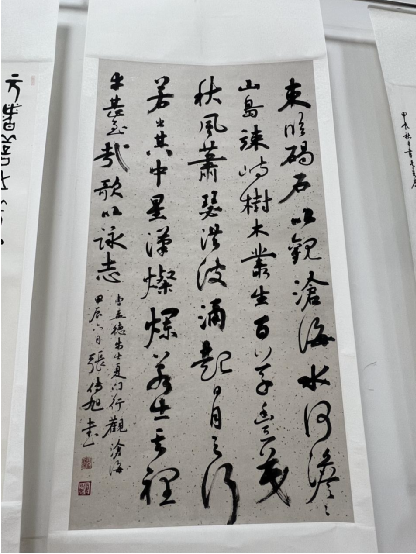 東临碣石以觀滄海水何澹〻
山島竦峙樹木叢生百草豐茂
秋風蕭瑟洪波涌起日月之行
若出其中星漢燦爛若出其裡
幸甚至哉歌以詠志
曹孟德步出夏门行觀滄海
甲辰六月張傳旭書